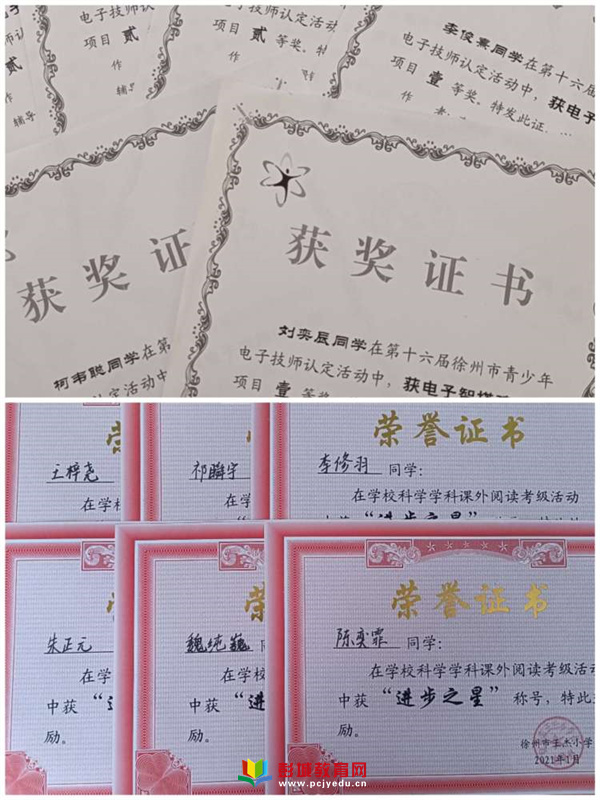 电子技师认定活动中
项目 贰 等奖。特发
作
辅导
李俊熹同学在第十六届
电子技师认定活动中，获电子
项目 壹 等奖。特发此证，
作 者
获奖证
柯韦聪同学在第
电子技师认定活动中
获奖证书
刘奕辰同学在第十六届徐州市青少年
电子技师认定活动中，获电子智塔
项目 壹 等奖。特发此证
王梓尧
在学
祁瞬宇
在学校
荣誉证书
李修羽 同学：
在学校科学学科课外阅读考级活动
中获 “进步之星”
朱正元
在学
中获 “进
励。
荣
魏纯巍 同
在学校科
中获 “进步
励。
荣誉证书
陈奕霏 同学：
在学校科学学科课外阅读考级活动
中获 “进步之星” 称号，特此
励。
徐州市王杰小学
2021年1月
彭城教育网
www.pcjyedu.cn